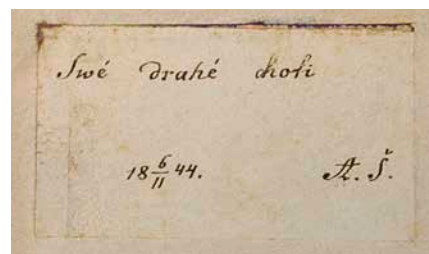 Swé drahé choti
18 6/11 44. A. Š.